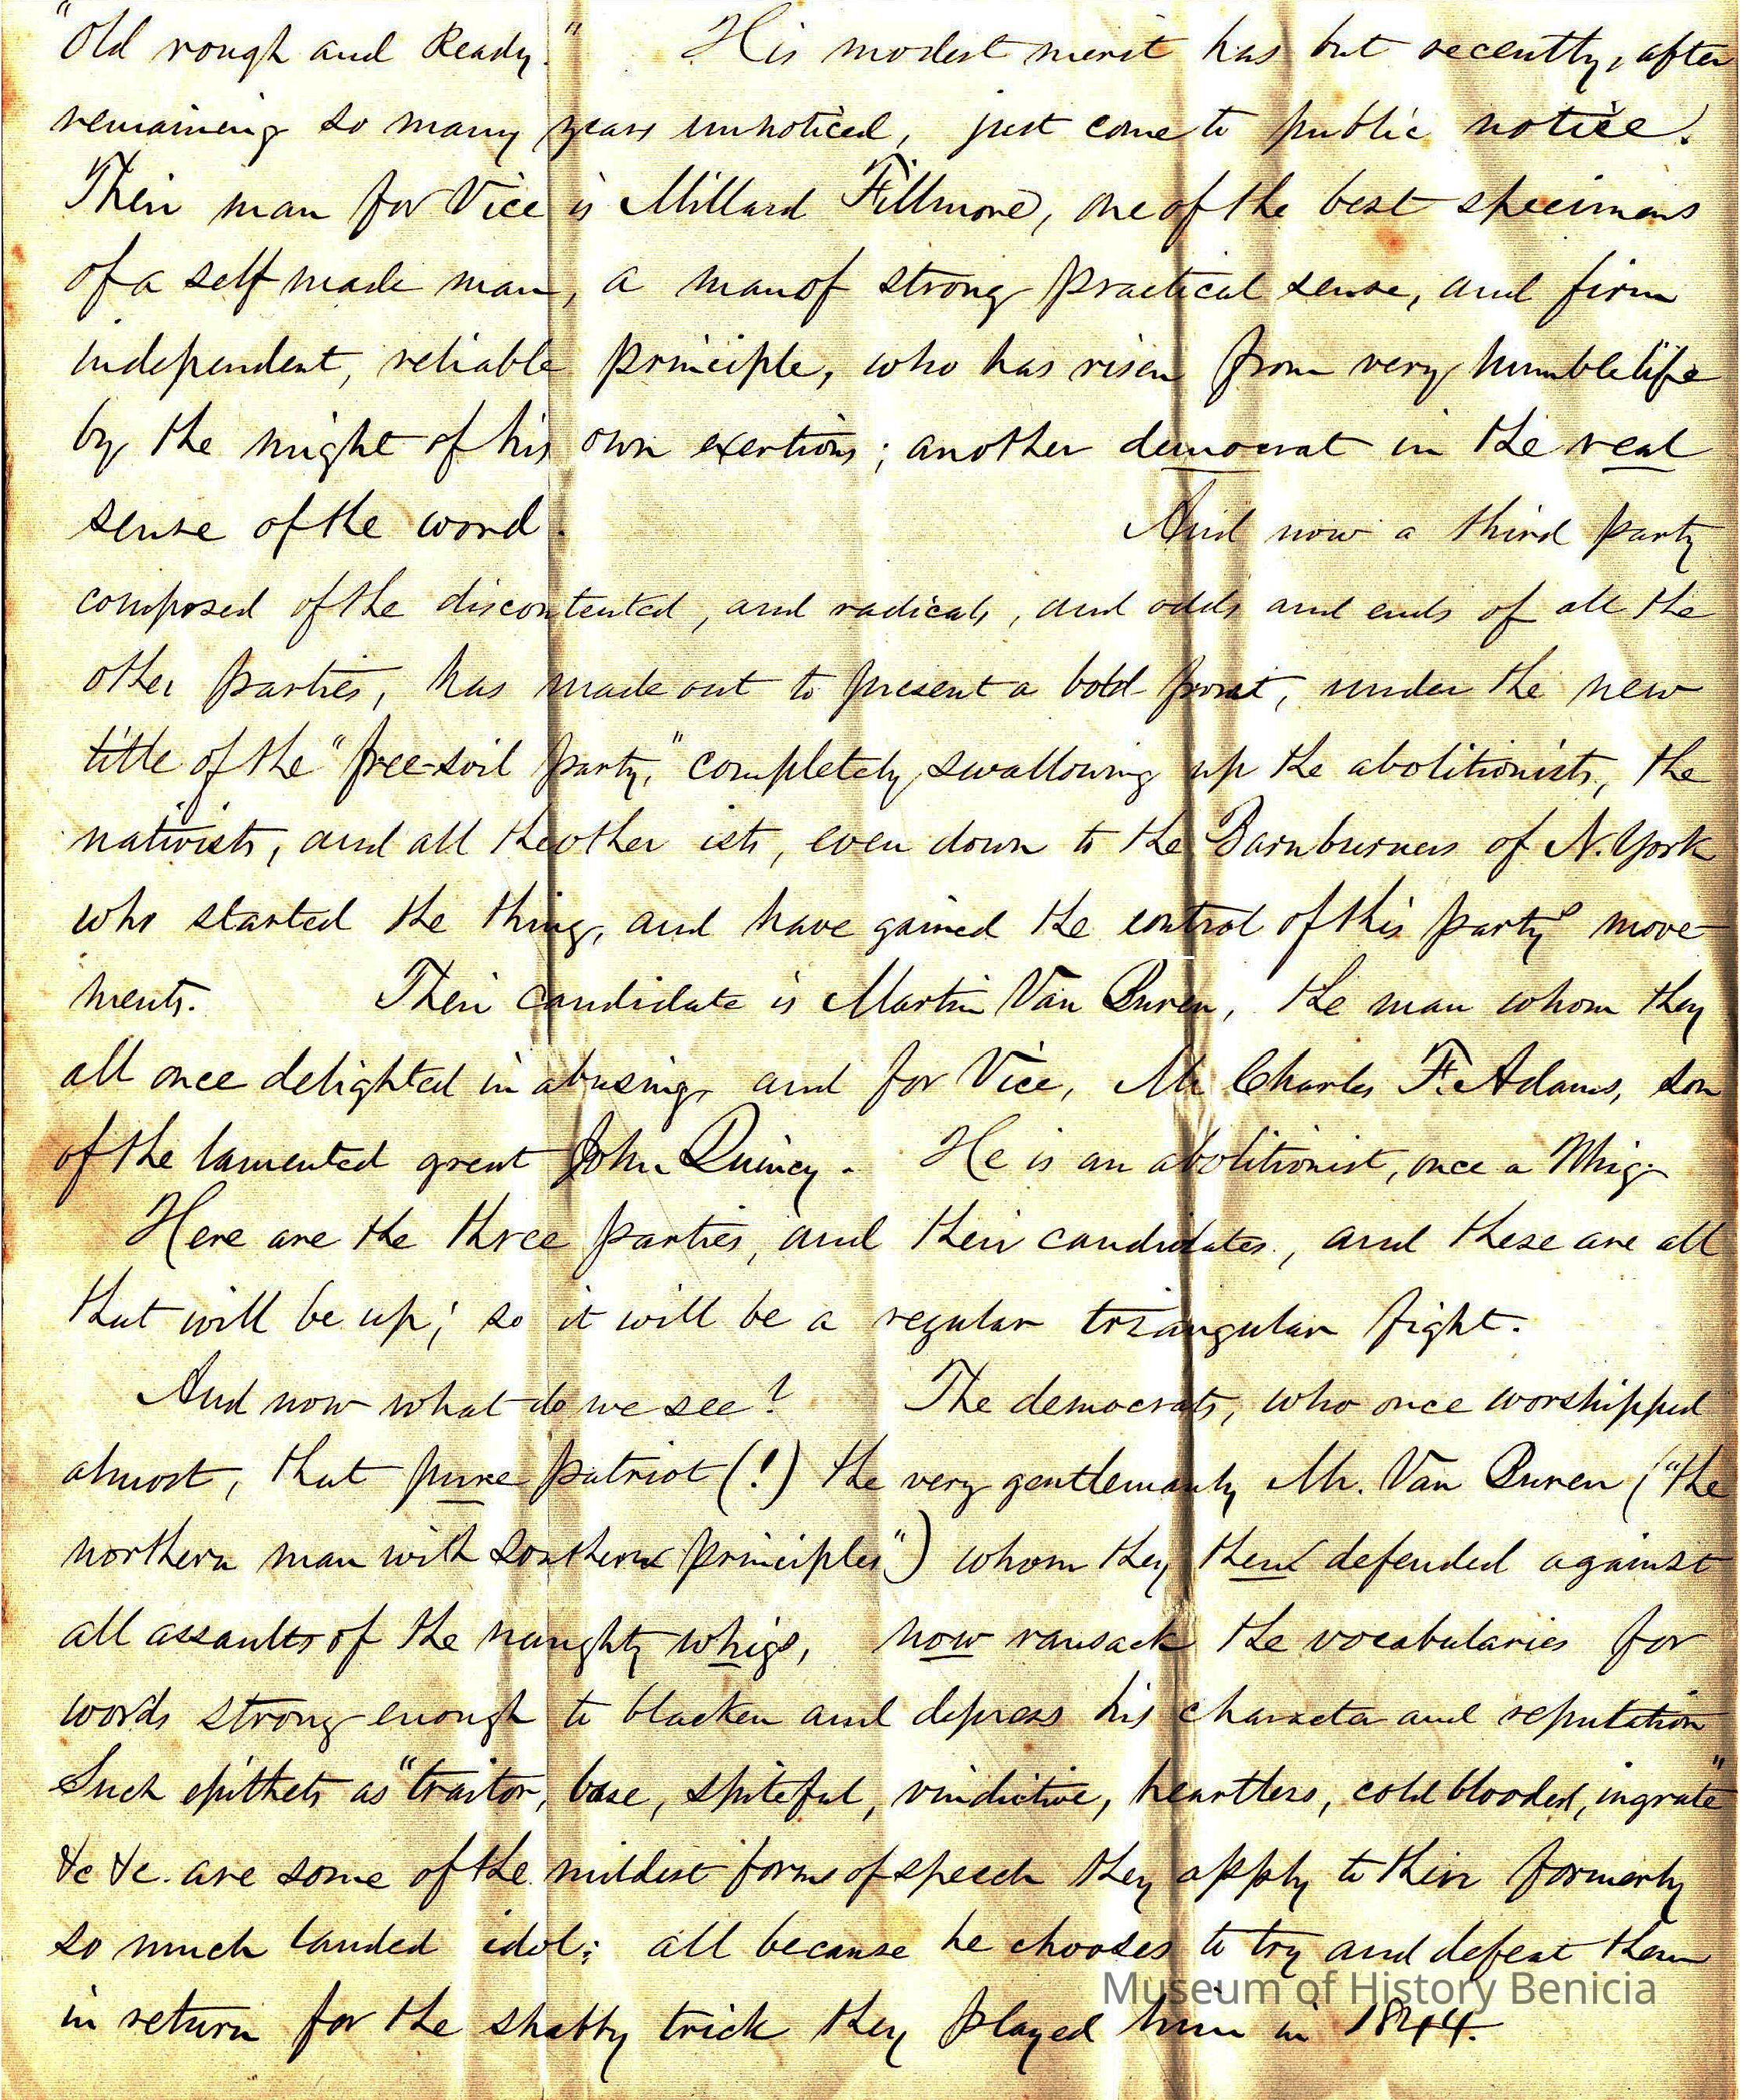 "Old rough and Ready." His modest merit has but recently, after
remaining so many years unnoticed, just come to public notice.
Their man for Vice is Millard Fillmore, one of the best specimens
of a self made man, a man of strong practical sense, and firm
independent, reliable principle, who has risen from very humble life
by the might of his own exertions; another democrat in the real
sense of the word. And now a third party
composed of the discontented, and radicals, and odds and ends of all the
other parties, has made out to present a bold front, under the new
title of the "free-soil party," completely swallowing up the abolitionists, the
nativists, and all the other ists, even down to the Barnburners of N. York
who started the thing, and have gained the control of this partys move-
ments. Their candidate is Martin Van Buren, the man whom they
all once delighted in abusing, and for Vice, Mr Charles F. Adams, son
of the lamented great John Quincy. He is an abolitionist, once a Whig.
Here are the three parties, and their candidates, and these are all
that will be up; so it will be a regular triangular fight.
And now what do we see? The democrats, who once worshipped
almost, that pure patriot (!) the very gentlemanly Mr. Van Buren ("the
northern man with southern principles") whom they then defended against
all assaults of the naughty whigs, now ransack the vocabularies for
words strong enough to blacken and depress his character and reputation
Such epithets as "traitor, base, spiteful, vindictive, heartless, cold blooded, ingrate"
&c &c. are some of the mildest forms of speech they apply to their formerly
so much lauded idol; all because he chooses to try and defeat them
in return for the shabby trick they played him in 1844.
Museum of History Benicia